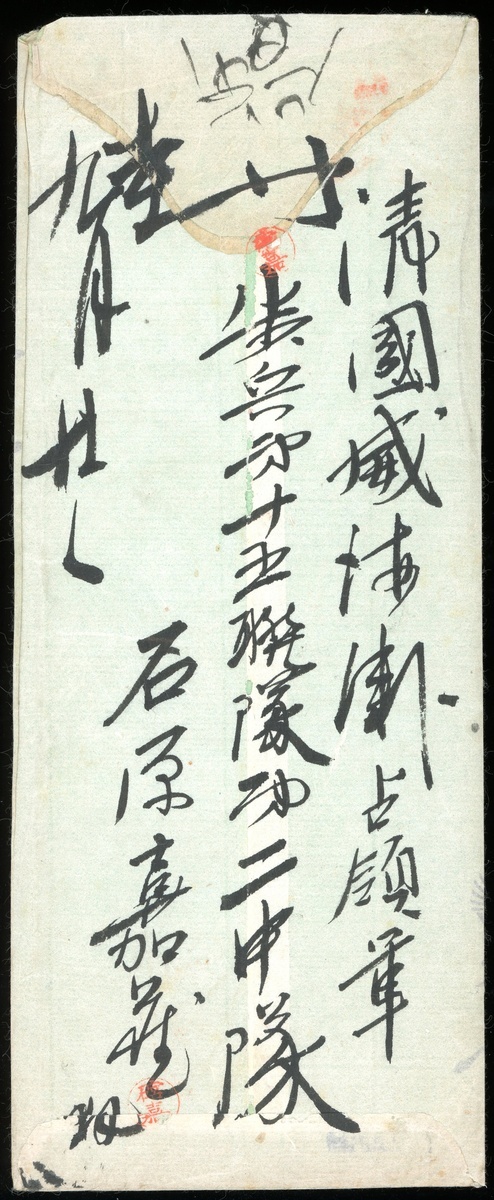 清國威海衛占領軍
歩兵第十五聯隊第二中隊
石原嘉蔵
九月廿